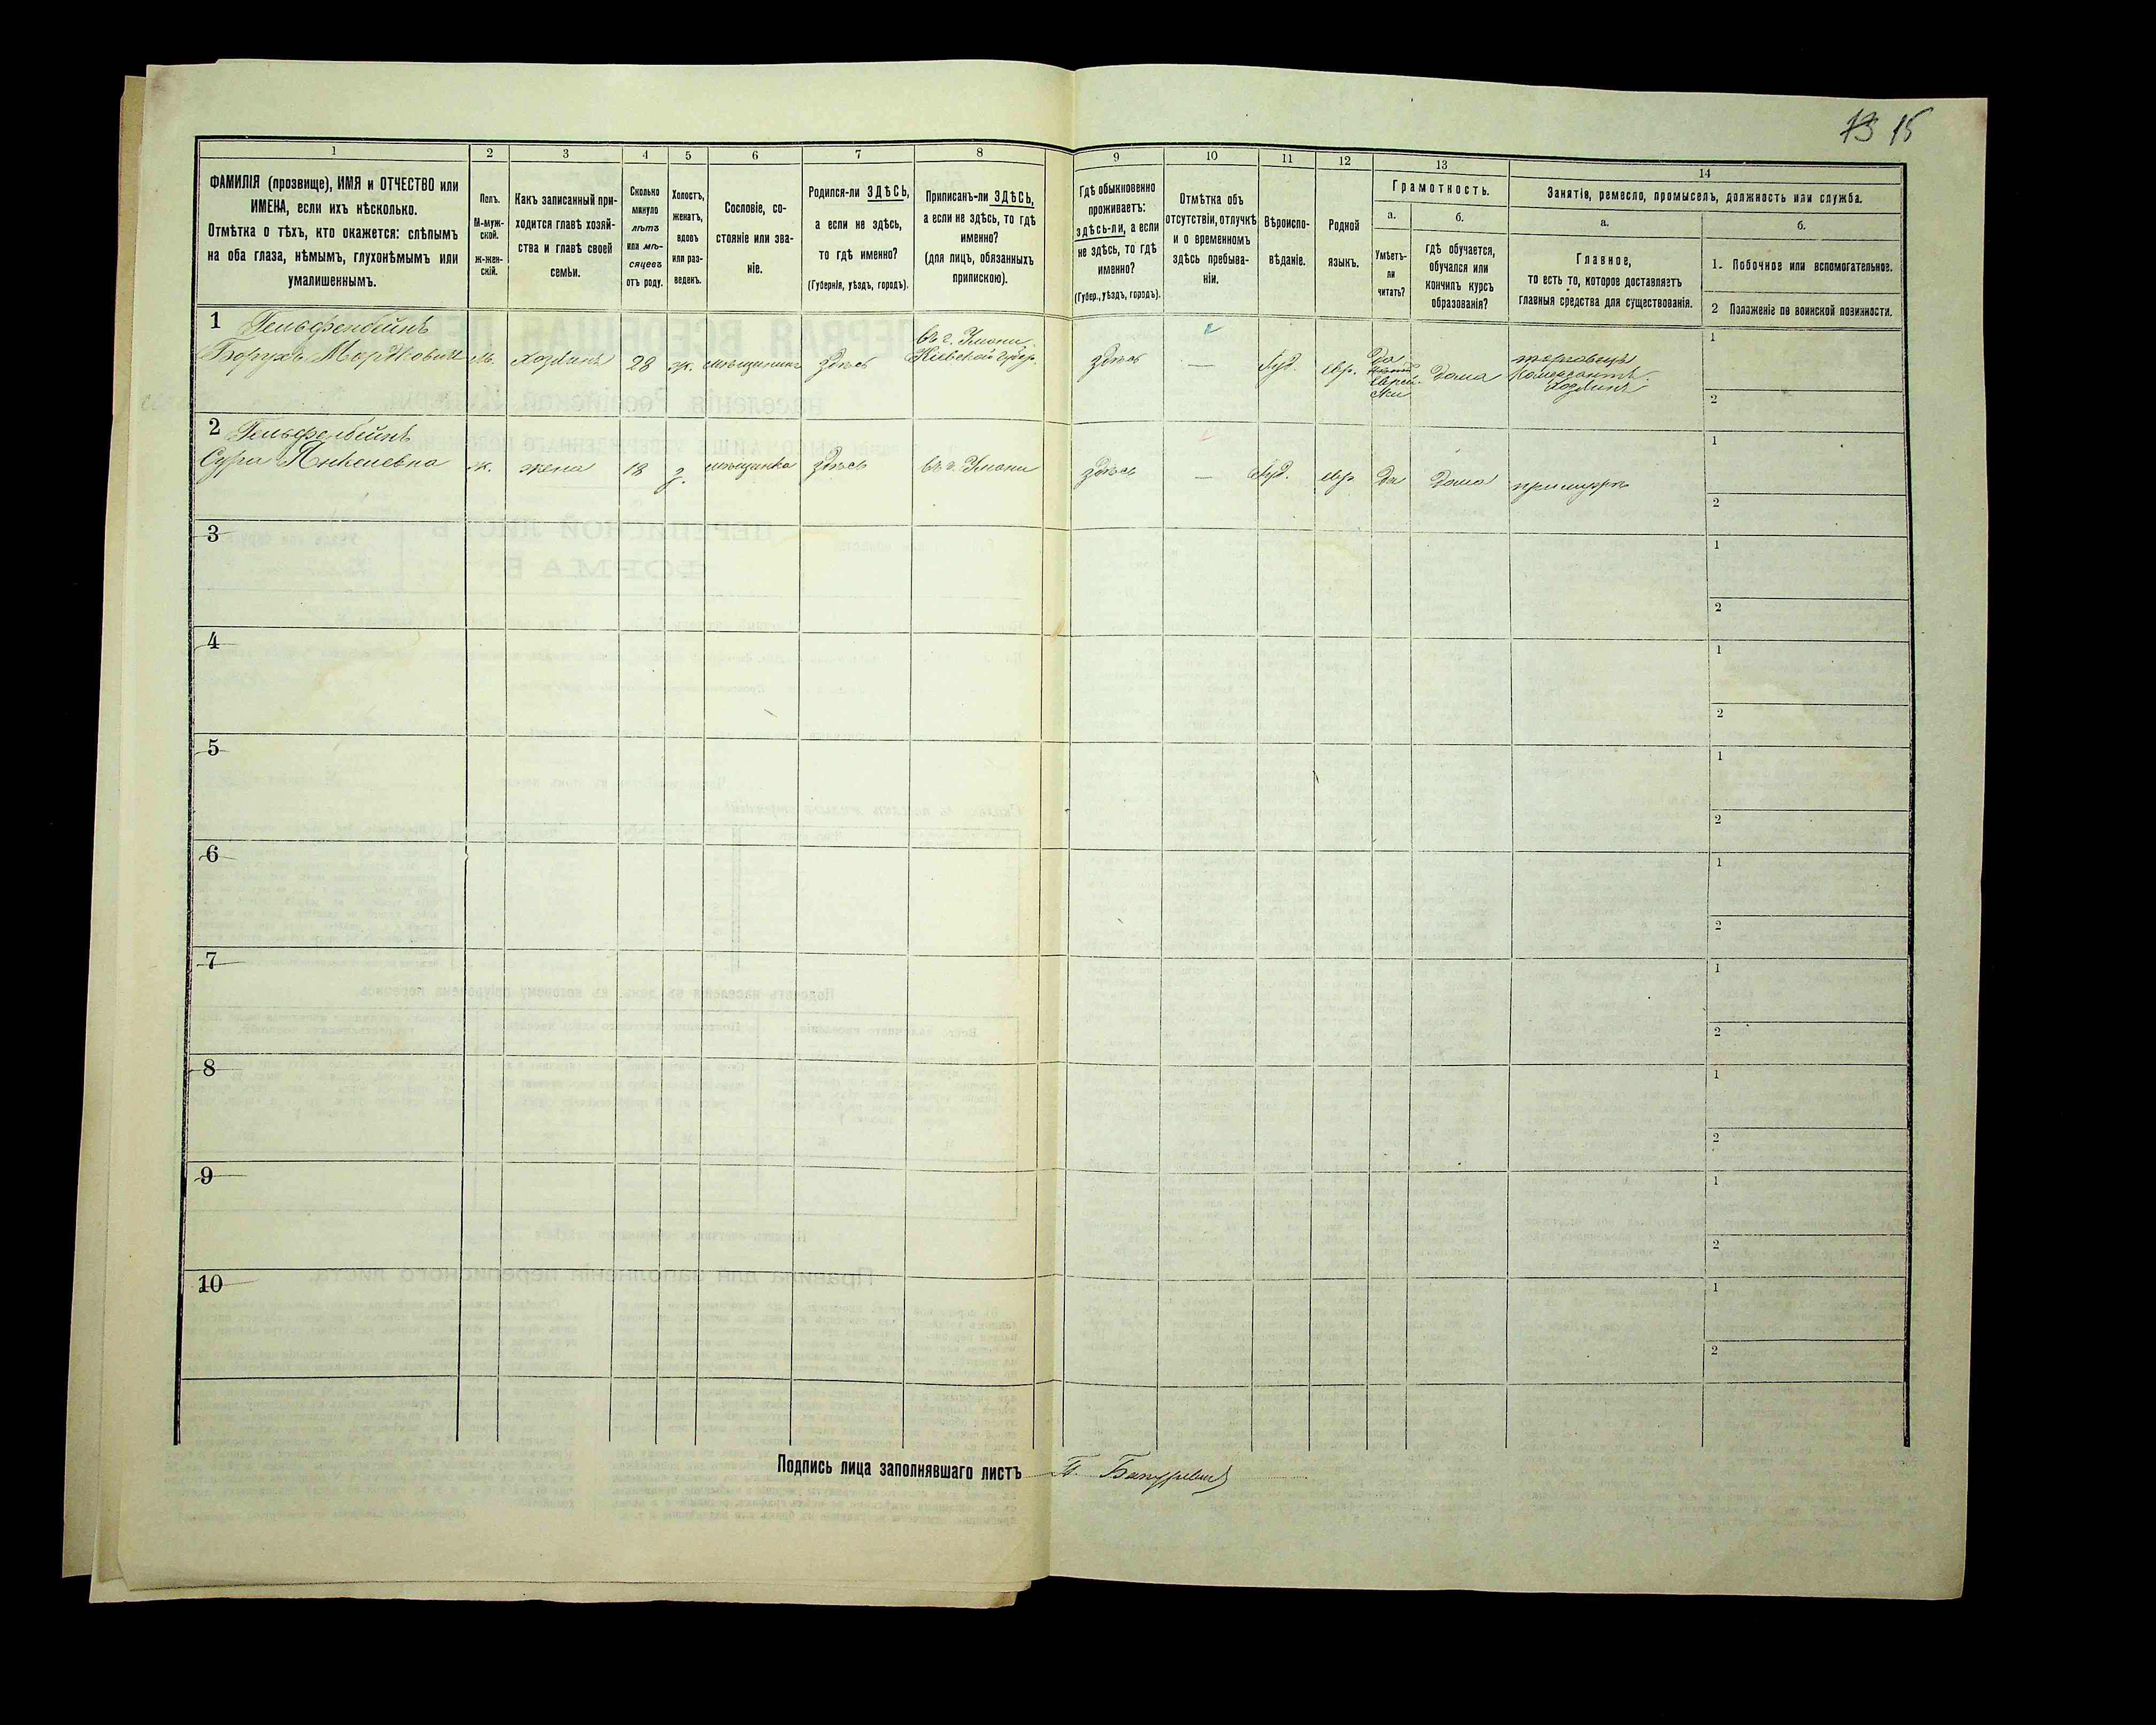 73 15
1
2
3
4
5
6
7
8
9
10
11
12
13
14
ФАМИЛІЯ (прозвище), ИМЯ и ОТЧЕСТВО или
ИМЕНА, если ихъ нѣсколько.
Отмѣтка о тѣхъ, кто окажется: слѣпымъ
на оба глаза, нѣмымъ, глухонѣмымъ или
умалишеннымъ.
Полъ.
М-муж-
ской.
ж-жен-
скій.
Какъ записанный при-
ходится главѣ хозяй-
ства и главѣ своей
семьи.
Сколько
минуло
лѣтъ
или мѣ-
сяцевъ
отъ роду.
Холостъ,
женатъ,
вдовъ
или раз-
веденъ.
Сословіе, со-
стояніе или зва-
ніе.
Родился-ли ЗДѢСЬ,
а если не здѣсь,
то гдѣ именно?
(Губернія, уѣздъ, городъ).
Приписанъ-ли ЗДѢСЬ,
а если не здѣсь, то гдѣ
именно?
(для лицъ, обязанныхъ
припискою).
Гдѣ обыкновенно
проживаетъ:
здѣсь-ли, а если
не здѣсь, то гдѣ
именно?
(Губер., уѣздъ, городъ).
Отмѣтка объ
отсутствіи, отлучкѣ
и о временномъ
здѣсь пребыва-
ніи.
Вѣроиспо-
вѣданіе.
Родной
языкъ.
Грамотность.
а.
б.
Умѣетъ-
ли
читать?
гдѣ обучается,
обучался или
кончилъ курсъ
образованія?
Занятія, ремесло, промыселъ, должность или служба.
а.
б.
Главное,
то есть то, которое доставляетъ
главныя средства для существованія.
1. Побочное или вспомогательное.
2 Положеніе по воинской повинности.
1 Гельфенбейнъ
Борухъ Марковичъ м. хозяинъ 28 ж. мѣщанинъ здѣсь
въ г. Умани
Кіевской губер.
здѣсь — Іуд. евр.
да
еврей-
ски
дома
торговецъ
хозяинъ
1
2
2 Гельфенбейнъ
Сура Янкелевна ж. жена 18 з. мѣщанка здѣсь въ г. Умани здѣсь — Іуд. евр. да дома при мужѣ
1
2
3
1
2
4
1
2
5
1
2
6
1
2
7
1
2
8
1
2
9
1
2
10
1
2
Подпись лица заполнявшаго листъ